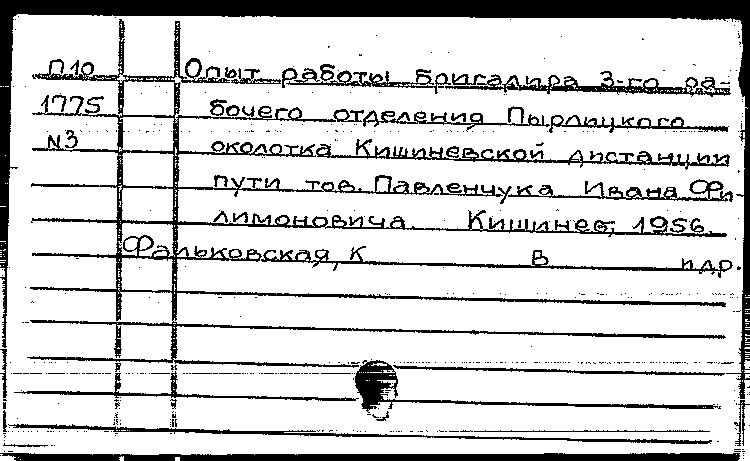 П10 Опыт работы бригадира 3-го ра-
1775 бочего отделения Пырлицкого
N3 околотка Кишиневской дистанции
пути тов. Павленчука Ивана Фи-
лимоновича. Кишинев, 1956.
Фальковская, К В идр.